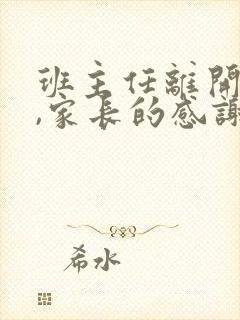 班主任離開
,家長的感謝
希水